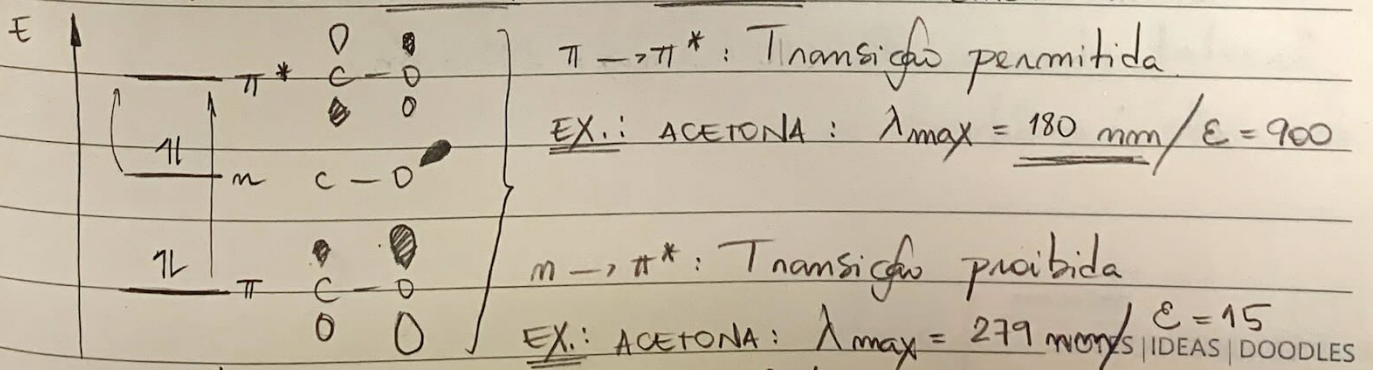 E
π* C - O
π → π* : Transição permitida
EX.: ACETONA : λmax = 180 nm / ε = 900
1l n C - O
1l π C - O
n → π* : Transição proibida
EX.: ACETONA : λmax = 279 nm / ε = 15
S | IDEAS | DOODLES